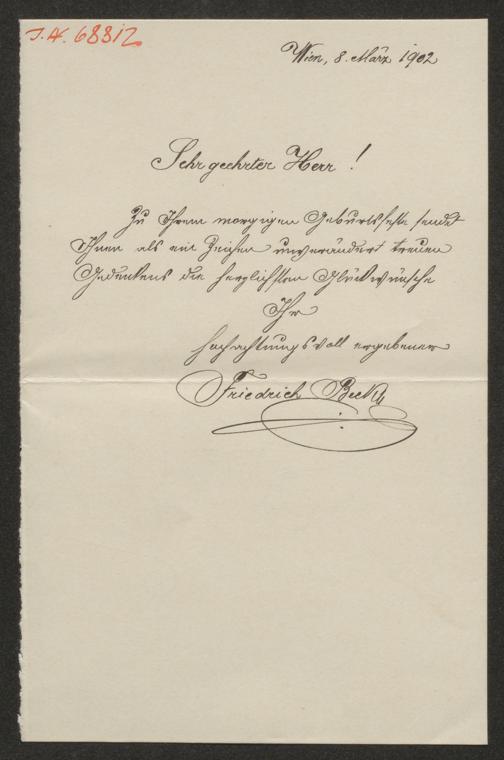 J.N. 68812
Wien, 8. März 1902
Sehr geehrter Herr!
Zu Ihrem morgigen Geburtsfeste sendet
Ihnen als ein Zeichen unverändert treuen
Gedenkens die herzlichsten Glückwünsche
Ihr
hochachtungsvoll ergebener
Friedrich Beck